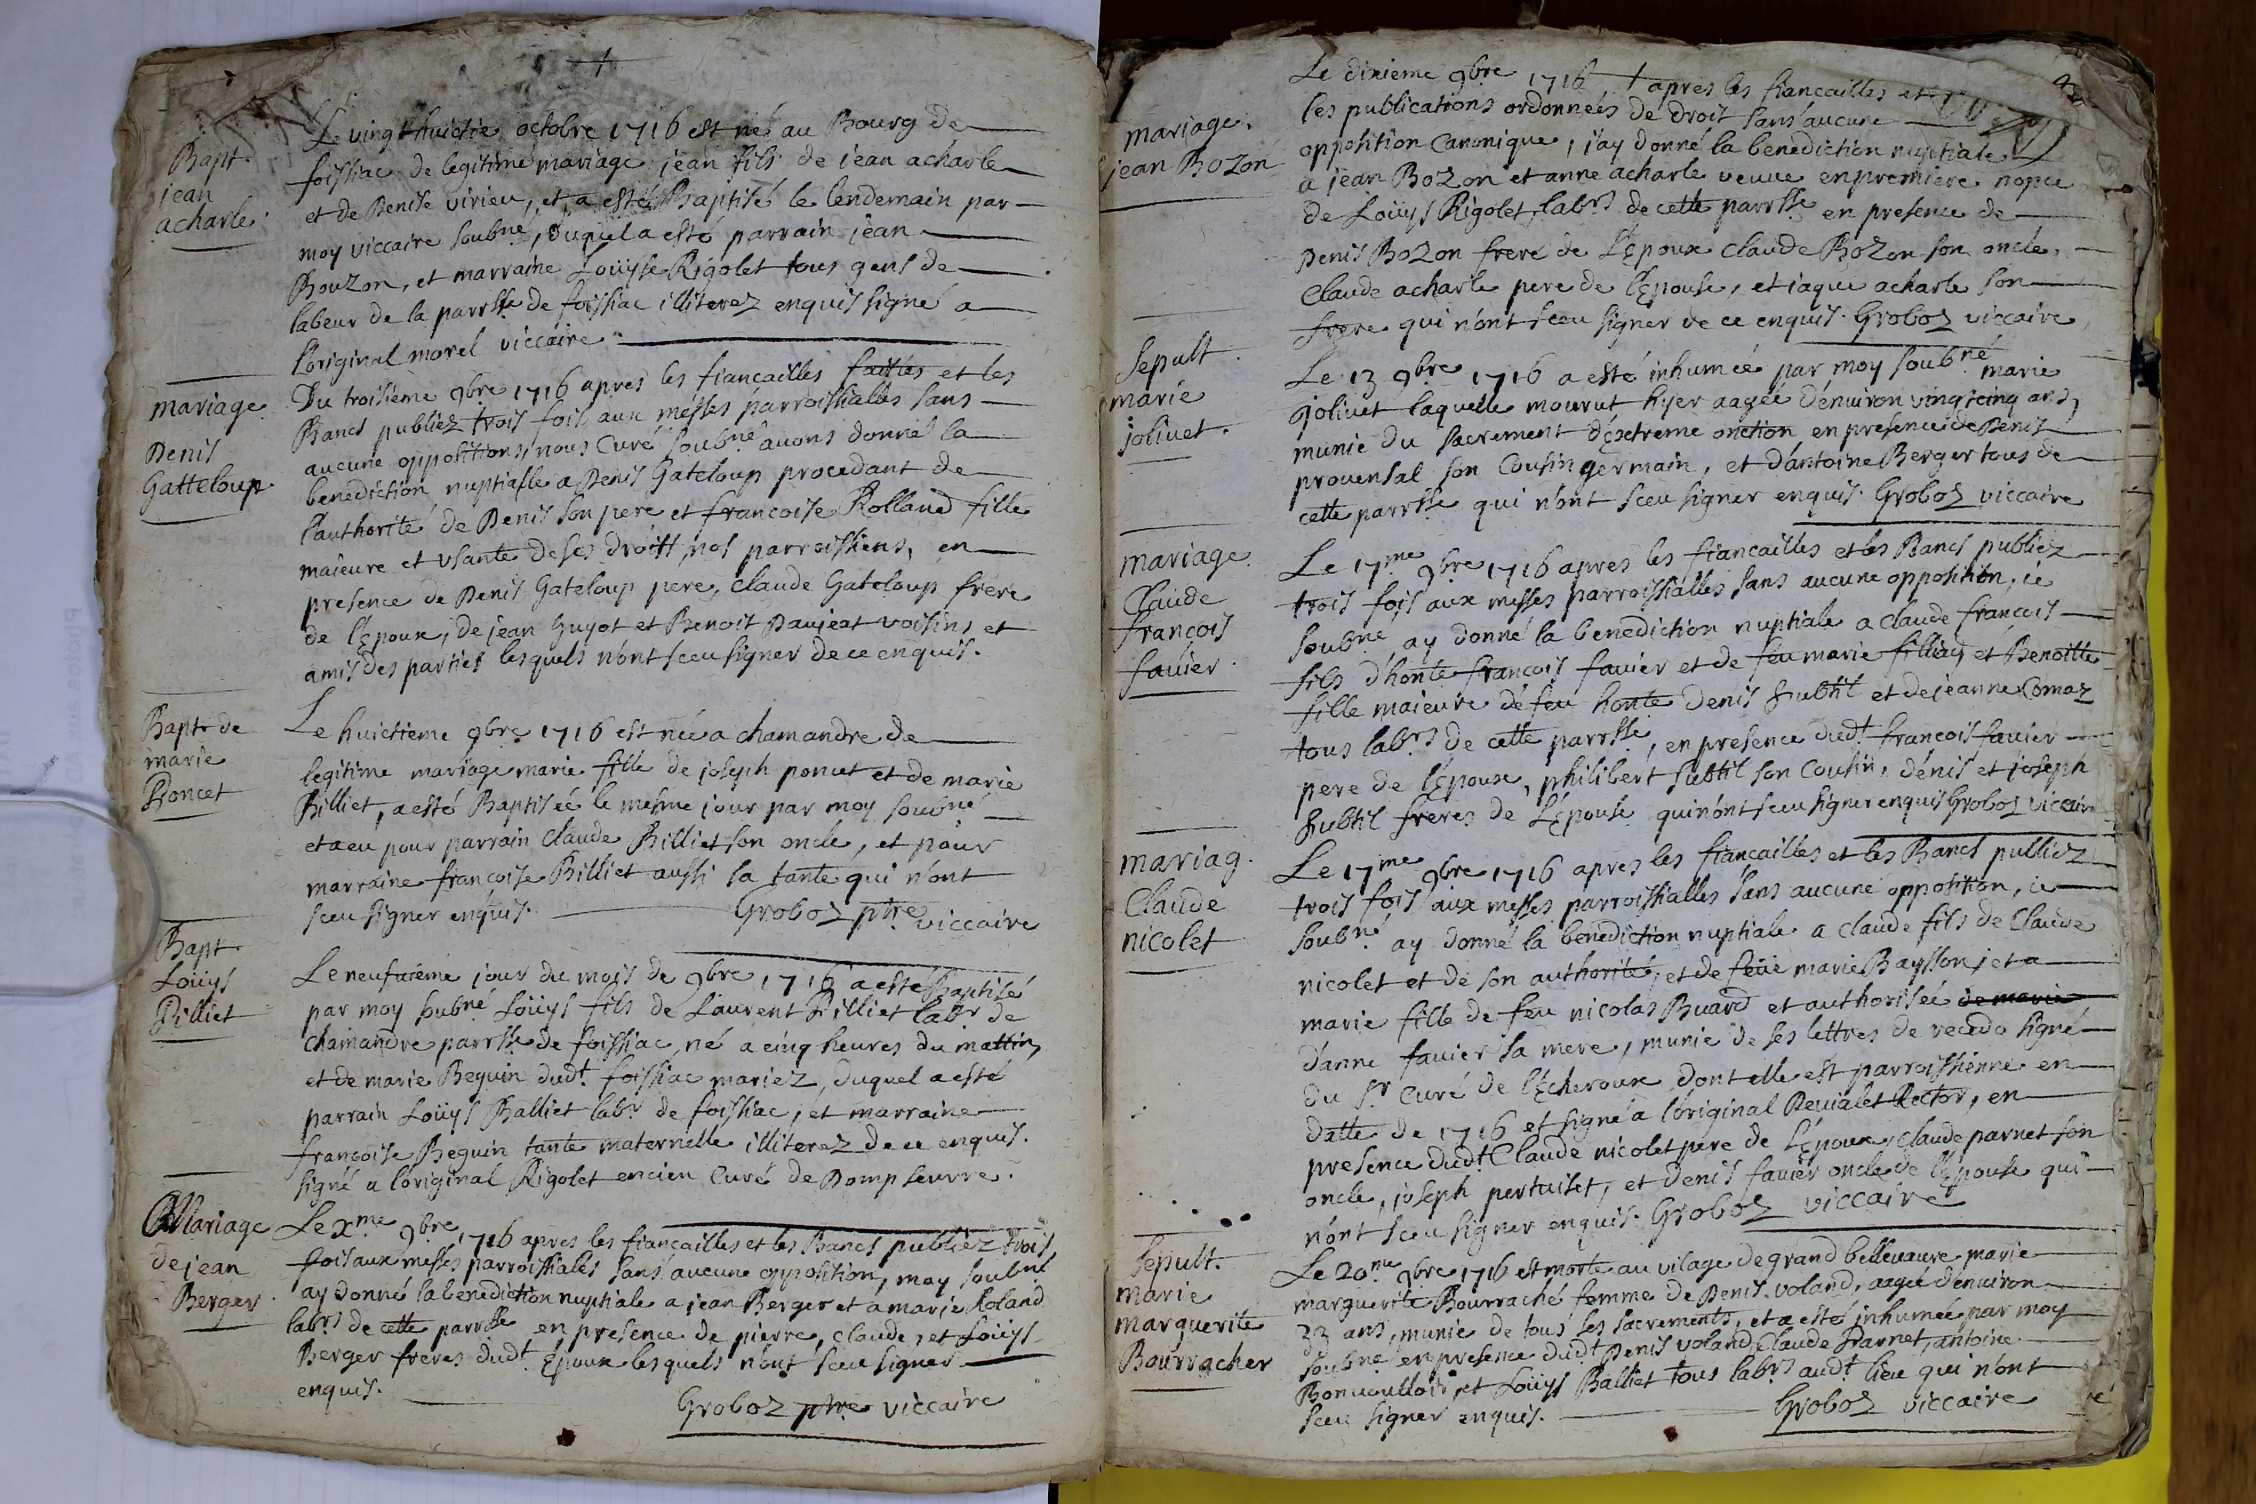 Bapt.
jean
acharle.
Le vingthuictie octobre 1716 est né au Bourg de
foissiac de legitime mariage jean fils de jean acharle
et de Denise virieu, et a esté Baptisé le lendemain par
moy viccaire soubné, duquel a esté parrain jean
Bouzon, et marraine Loüyse Rigolet tous gens de
labeur de la parrsse de foissiac illiterez enquis signé a
l'original morel viccaire
mariage
Denis
Gatteloup.
Du troisieme 9bre 1716 apres les fiancailles faittes et les
Bancs publiez trois fois aux messes parroissialles sans
aucune oppositions, nous Curé soubné avons donné la
benediction nuptialle a Denis Gateloup procedant de
l'authorité de Denis son pere et francoise Rolland fille
maieure et usante de ses droits, nos parroissiens, en
presence de Denis Gateloup pere, claude Gateloup frere
de l'Epoux, de jean Guyot et Benoit Daujeat voisins et
amis des parties lesquels n'ont sceu signer de ce enquis.
Bapt de
marie
Poncet
Le huictieme 9bre 1716 est née a chamandre de
legitime mariage marie fille de joseph poncet et de marie
Billiet, a esté Baptisée le mesme jour par moy soubné
et a eu pour parrain claude Billiet son oncle, et pour
marraine francoise Billiet aussi sa tante qui n'ont
sceu signer enquis. Groboz ptre viccaire
Bapt
Loüys
Pilliet
Le neufuieme jour du mois de 9bre 1716 a esté Baptisé
par moy soubné Loüys fils de Laurent Pilliet labr de
chamandre parrsse de foissiac, né a cinq heures du mattin,
et de marie Beguin dudt. foissiac mariez, duquel a esté
parrain Loüys Balliet labr de foissiac, et marraine
francoise Beguin tante maternelle illiterez de ce enquis.
signé a l'original Rigolet encien Curé de Dompseurre.
Mariage
de jean
Berger
Le Xme 9bre 1716 apres les fiancailles et les Bancs publiez trois
fois aux messes parroissiales sans aucune opposition, moy soubné
ay donné la benediction nuptiale a jean Berger et a marie Roland
labrs de cette parrsse en presence de pierre, claude, et Loüys
Berger freres dudt. Epoux lesquels n'ont sceu signer
enquis.
Groboz ptre viccaire
mariage.
jean Bozon
Le dixieme 9bre 1716 apres les fiancailles et
les publications ordonnées de droit sans aucune
opposition Canonique, j'ay donné la benediction nuptiale
a jean Bozon et anne acharle veuve en premiere nopce
de Loüys Rigolet, labrs de cette parrsse en presence de
Denis Bozon frere de l'Epoux claude Bozon son oncle,
claude acharle pere de l'Epouse, et jaque acharle son
frere qui n'ont sceu signer de ce enquis. Groboz viccaire
Sepult.
marie
jolivet.
Le 13 9bre 1716 a esté inhumée par moy soubné marie
jolivet laquelle mourut hyer aagée d'environ vingtcinq ans,
munie du sacrement d'extreme onction en presence de Denis
provensal son Cousin germain, et d'antoine Berger tous de
cette parrsse qui n'ont sceu signer enquis. Groboz viccaire
mariage.
Claude
françois
favier.
Le 17me 9bre 1716 apres les fiancailles et les Bancs publiez
trois fois aux messes parroissialles sans aucune opposition, ie
soubné ay donné la benediction nuptiale a claude francois
fils d'honte francois favier et de feu marie filliay et Benoitte
fille maieure de feu honte Denis Subtil et de jeanne Comaz
tous labrs de cette parrsse, en presence dudt francois favier
pere de l'Epoux, philibert subtil son Cousin, dénis et joseph
Subtil freres de l'Epouse qui n'ont sceu signer enquis Groboz viccaire
mariag.
Claude
nicolet
Le 17me 9bre 1716 apres les fiancailles et les Bancs pulliez
trois fois aux messes parroissialles sans aucune opposition, ie
soubné ay donné la benediction nuptiale a claude fils de Claude
nicolet et de son authorité, et de feüe marie Baysson, et a
marie fille de feu nicolas Buard et authorisée de marie
d'anne favier sa mere, munie de ses lettres de recedo signé
du Sr Curé de l'Echeroux dont elle est parroissienne en
datte de 1716 et signé a l'original Devialet Rector, en
presence dudt Claude nicolet pere de l'Epoux, claude parnet son
oncle, joseph pertuiset, et denis favier oncle de l'Epouse qui
n'ont sceu signer enquis. Groboz viccaire
Sepult.
marie
marguerite
Bourracher
Le 20me 9bre 1716 est morte au vilage de grand bellevavre marie
marguerite Bourraché femme de Denis voland, aagée d'environ
33 ans, munie de tous les sacrements, et a esté inhumée par moy
soubné en presence dudt Denis voland, Claude Parnet, antoine
et Loüys Balliet tous labrs audt lieu qui n'ont
sceu signer enquis. Groboz viccaire